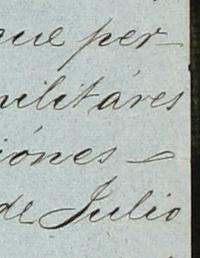 que per-
militáres
iónes -
de Julio